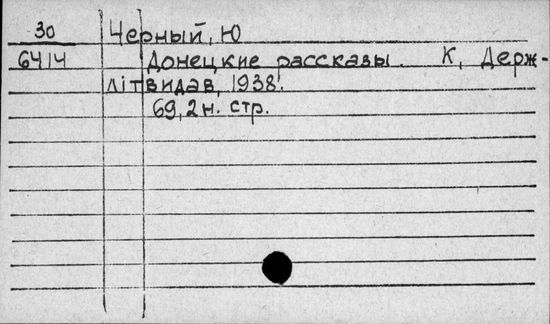 30 Черный, Ю
6414 Донецкие рассказы. К, Держ-
літвидав, 1938.
69, 2 н. стр.